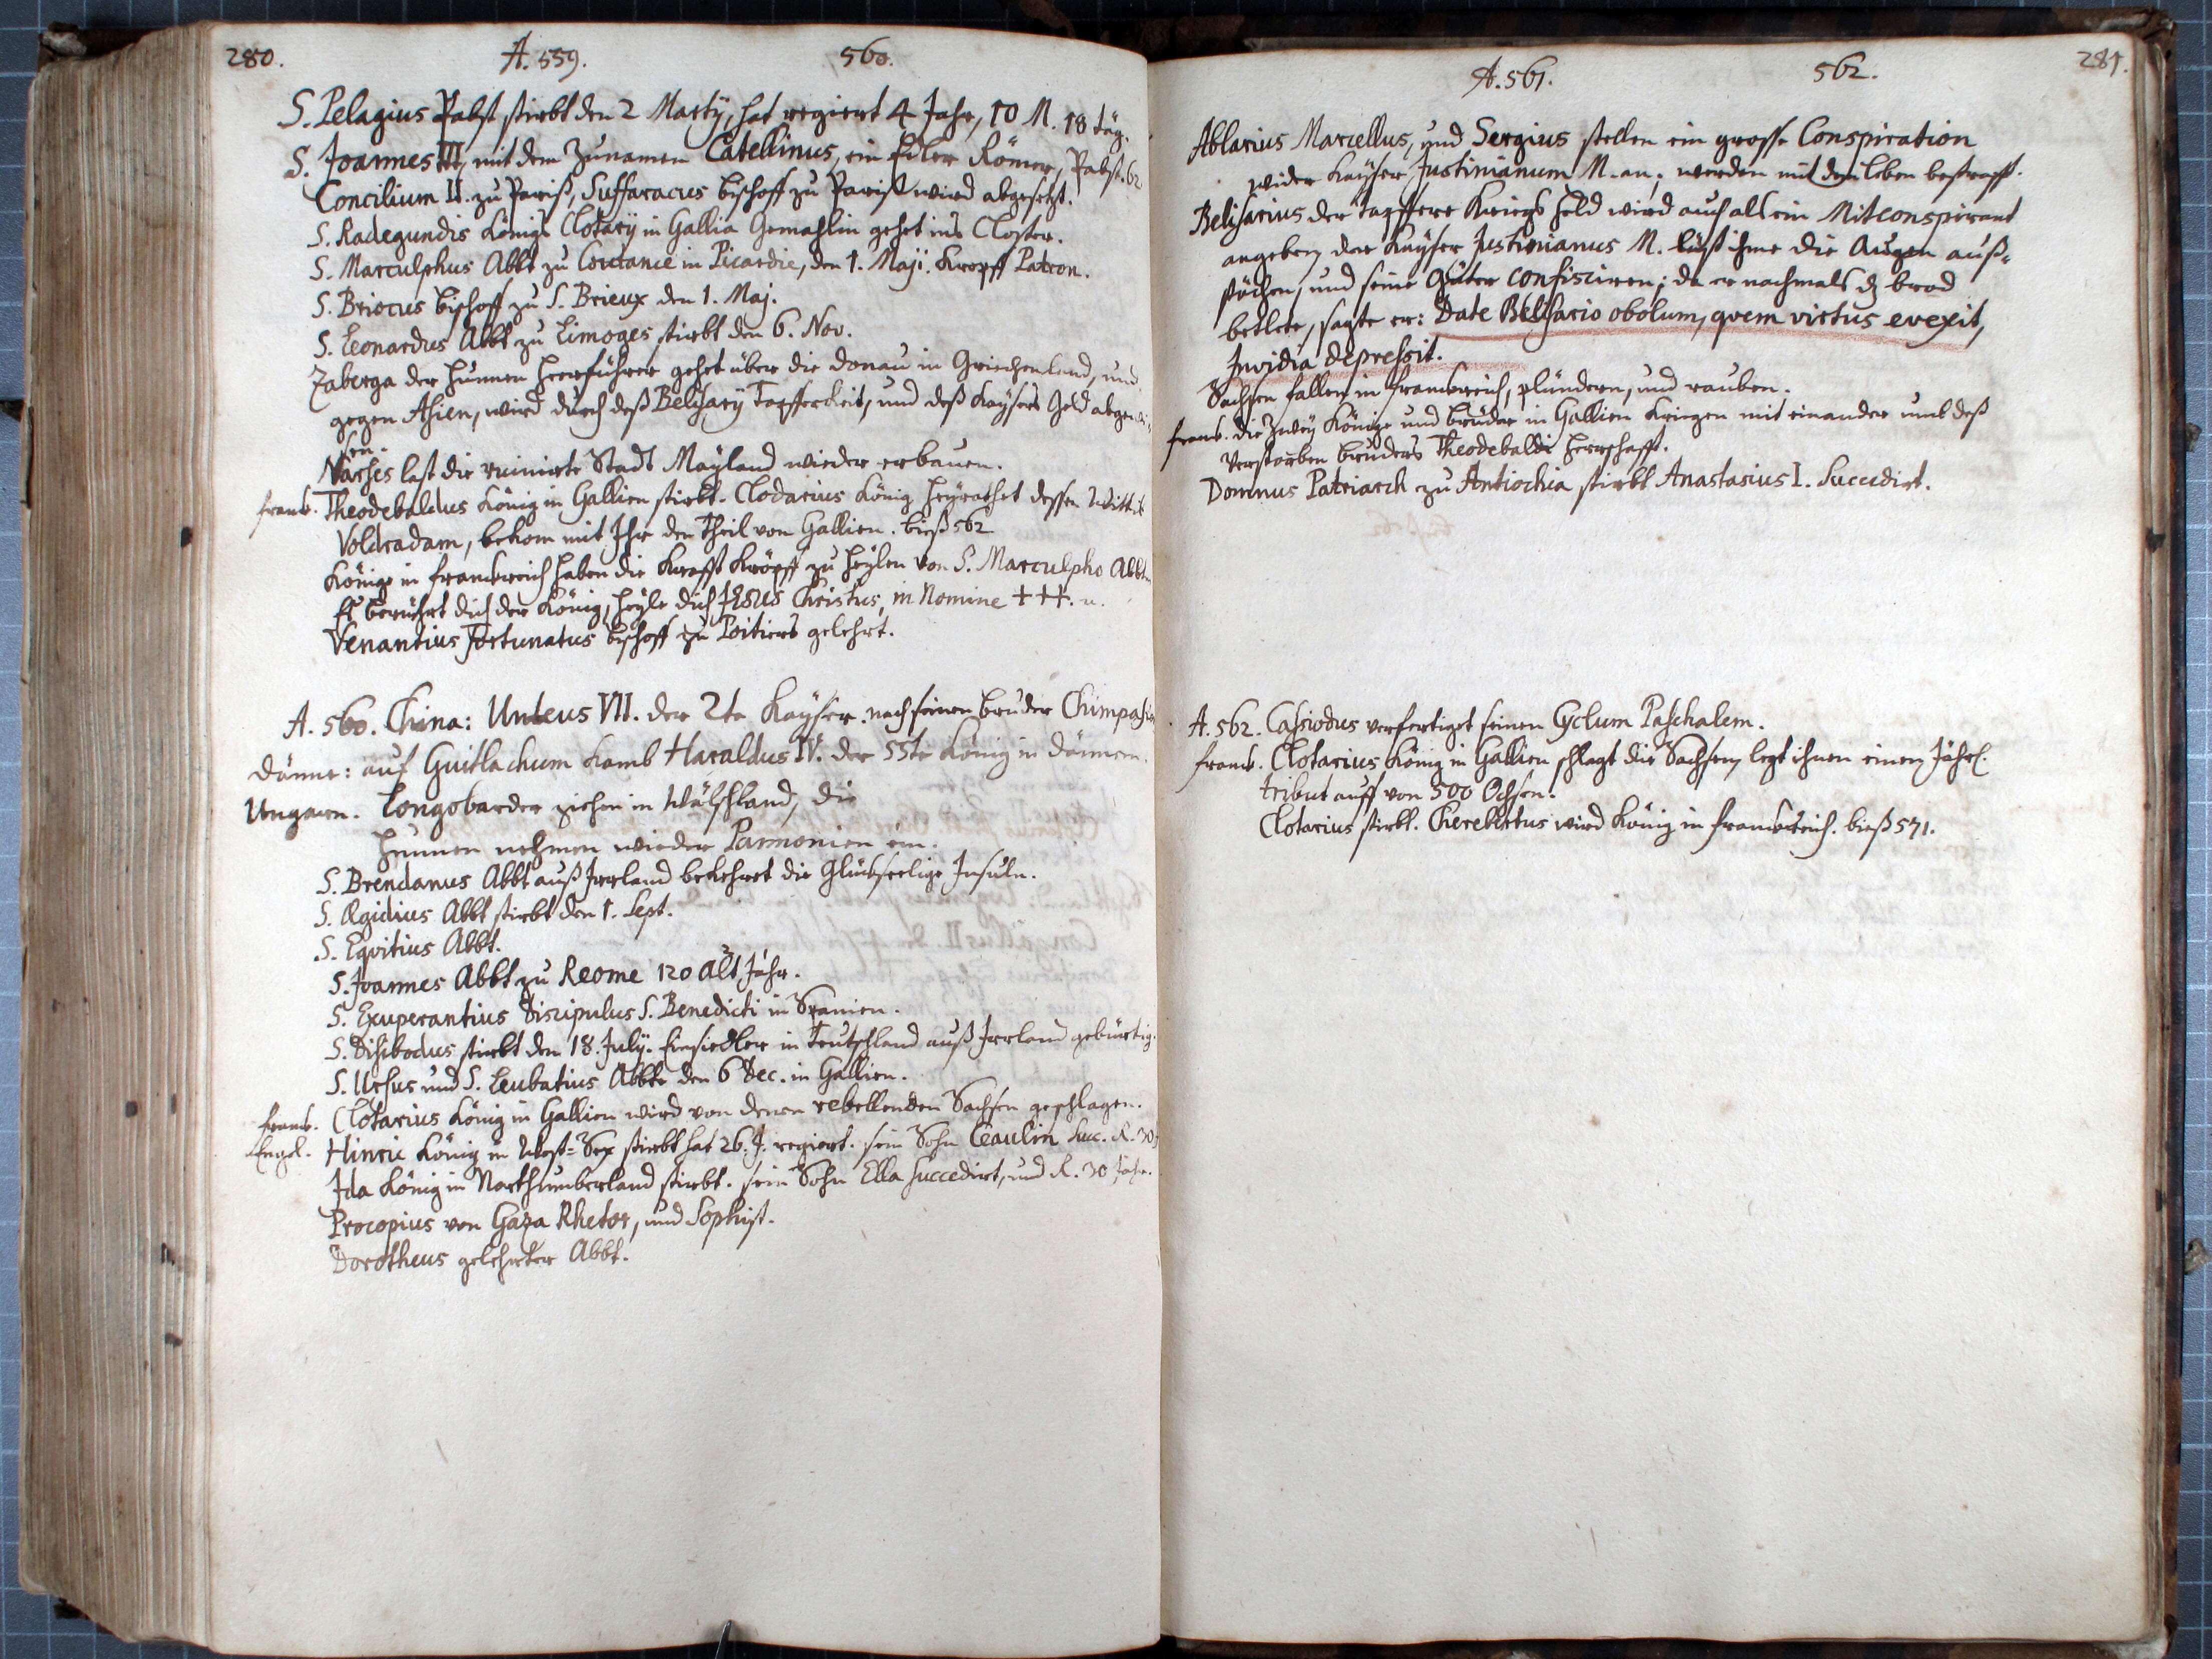 280. A. 559. 560.
S. Pelagius Pabst stirbt den 2 Martÿ, hat regiert 4 Jahr, 10 M. 18 täg.
S. Joannes III, mit dem Zunamen Catellinus, ein Edler Römer, Pabst. 62
Concilium II. zu Pariß, Suffaracus Bischoff zu Pariß wird abgesetzt.
S. Radegundis Königs Clotarÿ in Gallia Gemahlin gehet ins Closter.
S. Marculphus Abbt zu Coutance in Picardie, den 1. Maji. Kropff Patron.
S. Briocus Bischoff zu S. Brieux den 1. Maj.
S. Leonardus Abbt zu Limoges stirbt den 6. Nov.
Zaberga der Hunnen Heerführer gehet über die Donau in Griechenland, und
gegen Asien, wird durch deß Belisarÿ Tapfferkeit, und deß Kaysers Geld abgewi-
sen.
Narses last die ruinirte Stadt Mayland wieder erbauen.
franck. Theodebaldus König in Gallien stirbt. Clodarius König heyrathet dessen Wittib
Voldradam, bekom mit Ihr den Theil von Gallien. bieß 562
Könige in franckreich haben die Krafft Kröpff zu heylen von S. Marculpho Abbten
Es berührt dich der König, heyle dich JEsus Christus, in Nomine +++. u.
Venantius Fortunatus Bischoff zu Poitiers gelehrt.
A. 560. China: Unteus VII. der 2te Kayser. nach seinen bruder Chimpasi
Dänne: auf Guitlachum kamb Haraldus IV. der 55te König in Dännem.
Ungarn. Longobarder ziehen in Wälschland, die
Hunnen nehmen wieder Pannonien ein.
S. Brendanus Abbt auß Irrland bekehret die Glückseelige Insuln.
S. Ægidius Abbt stirbt den 1. Sept.
S. Eqvitius Abbt.
S. Joannes Abbt zu Reome 120 Alt Jahr.
S. Exuperantius Discipulus S. Benedicti in Spanien.
S. Disibodus stirbt den 18. Julÿ. Einsiedler in Teutschland auß Irrland gebürtig.
S. Ursus und S. Leubatius Abbte den 6 Dec. in Gallien.
franck. Clotarius König in Gallien wird von denen rebellenden Sachsen geschlagen.
Engel. Hinric König in West-Sex stirbt hat 26. J. regiert. sein Sohn Ceaulin Suc. R. 30
Ida König in Northumberland stirbt. sein Sohn Ella Succedirt, und R. 30 Jahr.
Procopius von Gaza Rhetor, und Sophist.
Dorotheus gelehrter Abbt.
A. 561. 562. 281.
Ablarius Marcellus, und Sergius stellen ein grosse Conspiration
wider Kayser Justinianum M. an; werden mit dem leben bestrafft.
Belisarius der tapffere Kriegs Held wird auch als ein Mitconspirant
angeben, der Kayser Justinianus M. läßt ihme die Augen auß-
stächen, und seine Güter confisciren; da er nachmals dz brod
betlete, sagte er: Date Belisario obolum, qvem virtus evexit,
Invidia depressit.
Sachsen fallen in franckreich, plündern, und rauben.
franck. die zwey Könige und brüder in Gallien kriegen mit einander umb deß
verstorben bruders Theodebaldi Herrschafft.
Domnus Patriarch zu Antiochia stirbt Anastasius I. Succedirt.
A. 562. Cassiodus verfertiget seinen Cyclum Paschalem.
franck. Clotarius König in Gallien schlagt die Sachsen, legt ihnen einen Jährl.
tribut auff von 500 Ochsen.
Clotarius stirbt. Cherebertus wird König in franckreich. bieß 571.